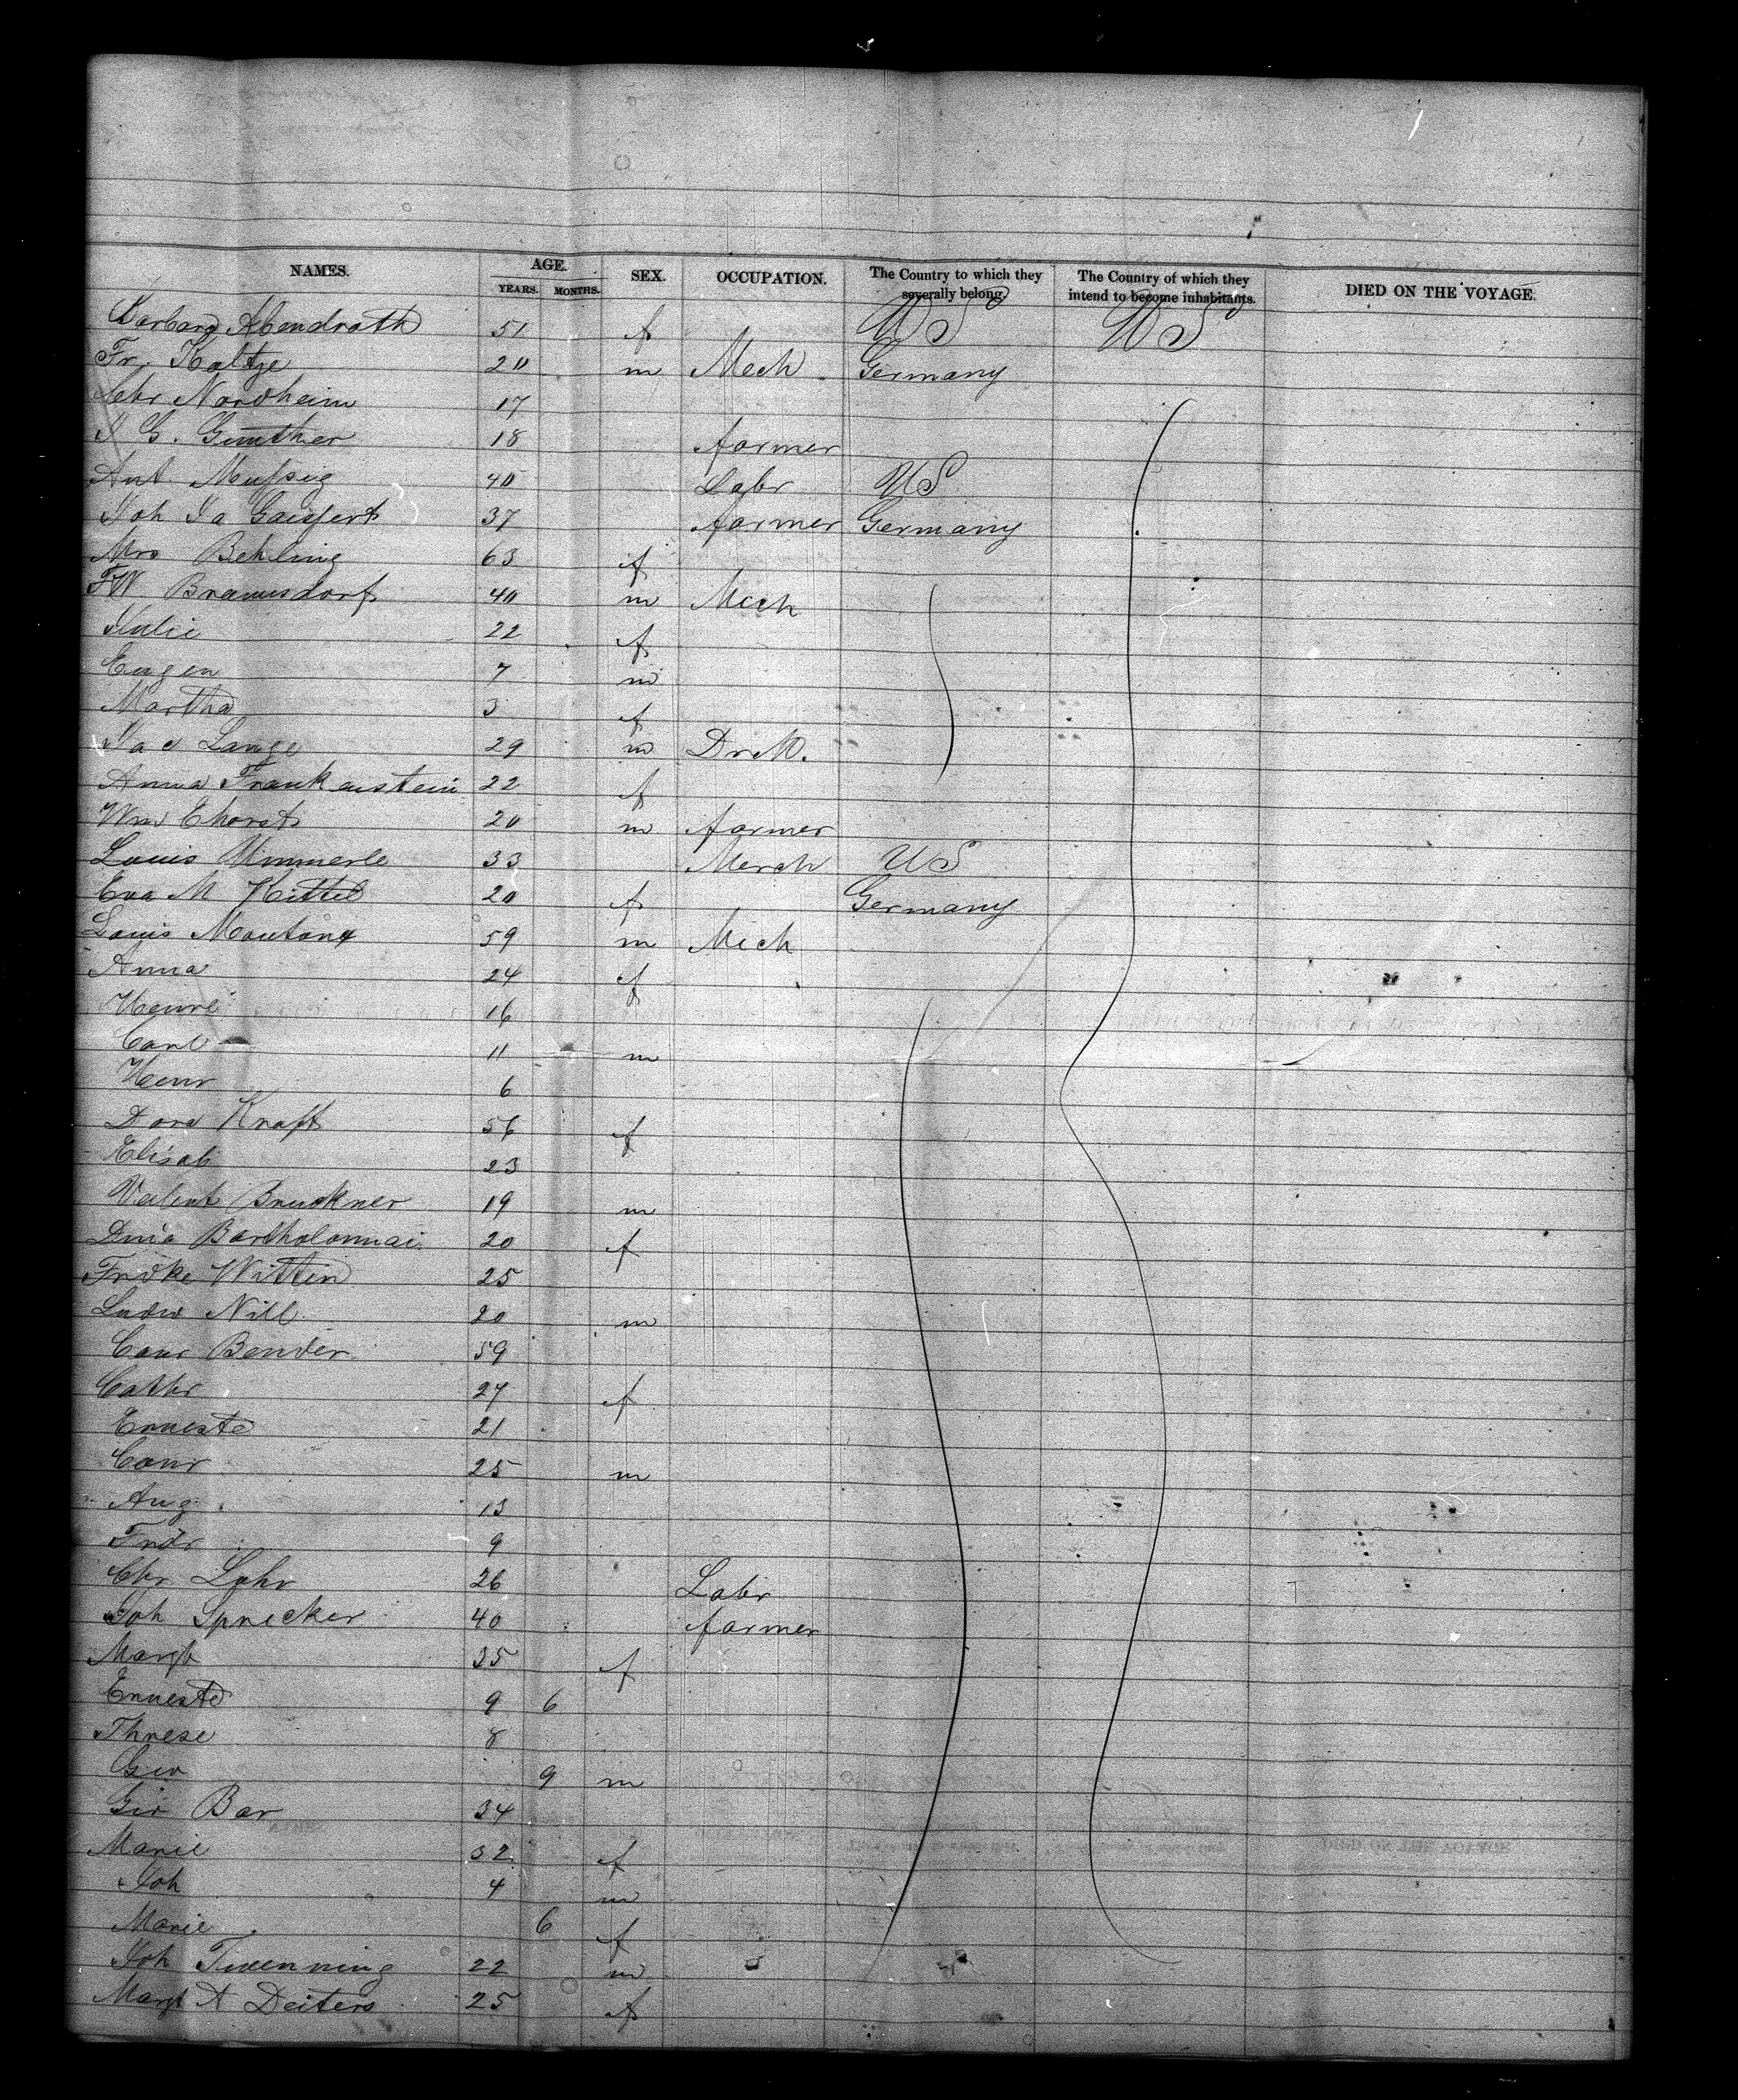 NAMES. AGE. SEX. OCCUPATION. The Country to which they severally belong. The Country of which they intend to become inhabitants. DIED ON THE VOYAGE.
YEARS. MONTHS.
Barbara Abendroth 51 f US US
Fr. Holtze 20 m Mech Germany
Sebr Nordheim 17
I G. Gunther 18 farmer
Ant. Mussig 40 Labr US
Joh Ja Geissert 37 farmer Germany
Mrs Behling 63 f
FW Bramsdorf 40 m Mech
Julie 22 f
Eugen 7 m
Martha 3 f
Jac Lange 29 m
Anna Frankenstein 22 f
Wm Ehorst 20 m farmer
Louis Ummerle 33 Merch US
Eva M Kittel 20 f Germany
Louis Moutong 59 m Mech
Anna 24 f
Henre 16
Carl 11 m
Henr 6
Dora Kraft 56 f
Elisab 23
Valent Bruckner 19 m
Bartholomai 20 f
Fridke Witten 25
Ludw Nill 20 m
Conr Bender 59
Cathr 27 f
Erneste 21
Conr 25 m
Aug. 13
Fridr 9
Chr Lohr 26 Labr
Joh Sprecker 40 farmer
Margt 35 f
Erneste 9 6
Threse 8
Geo 9 m
Geo Bar 34
Marie 32 f
Joh 4 m
Marie 6 f
Joh Twenning 22 m
Margt A Deiters 25 f